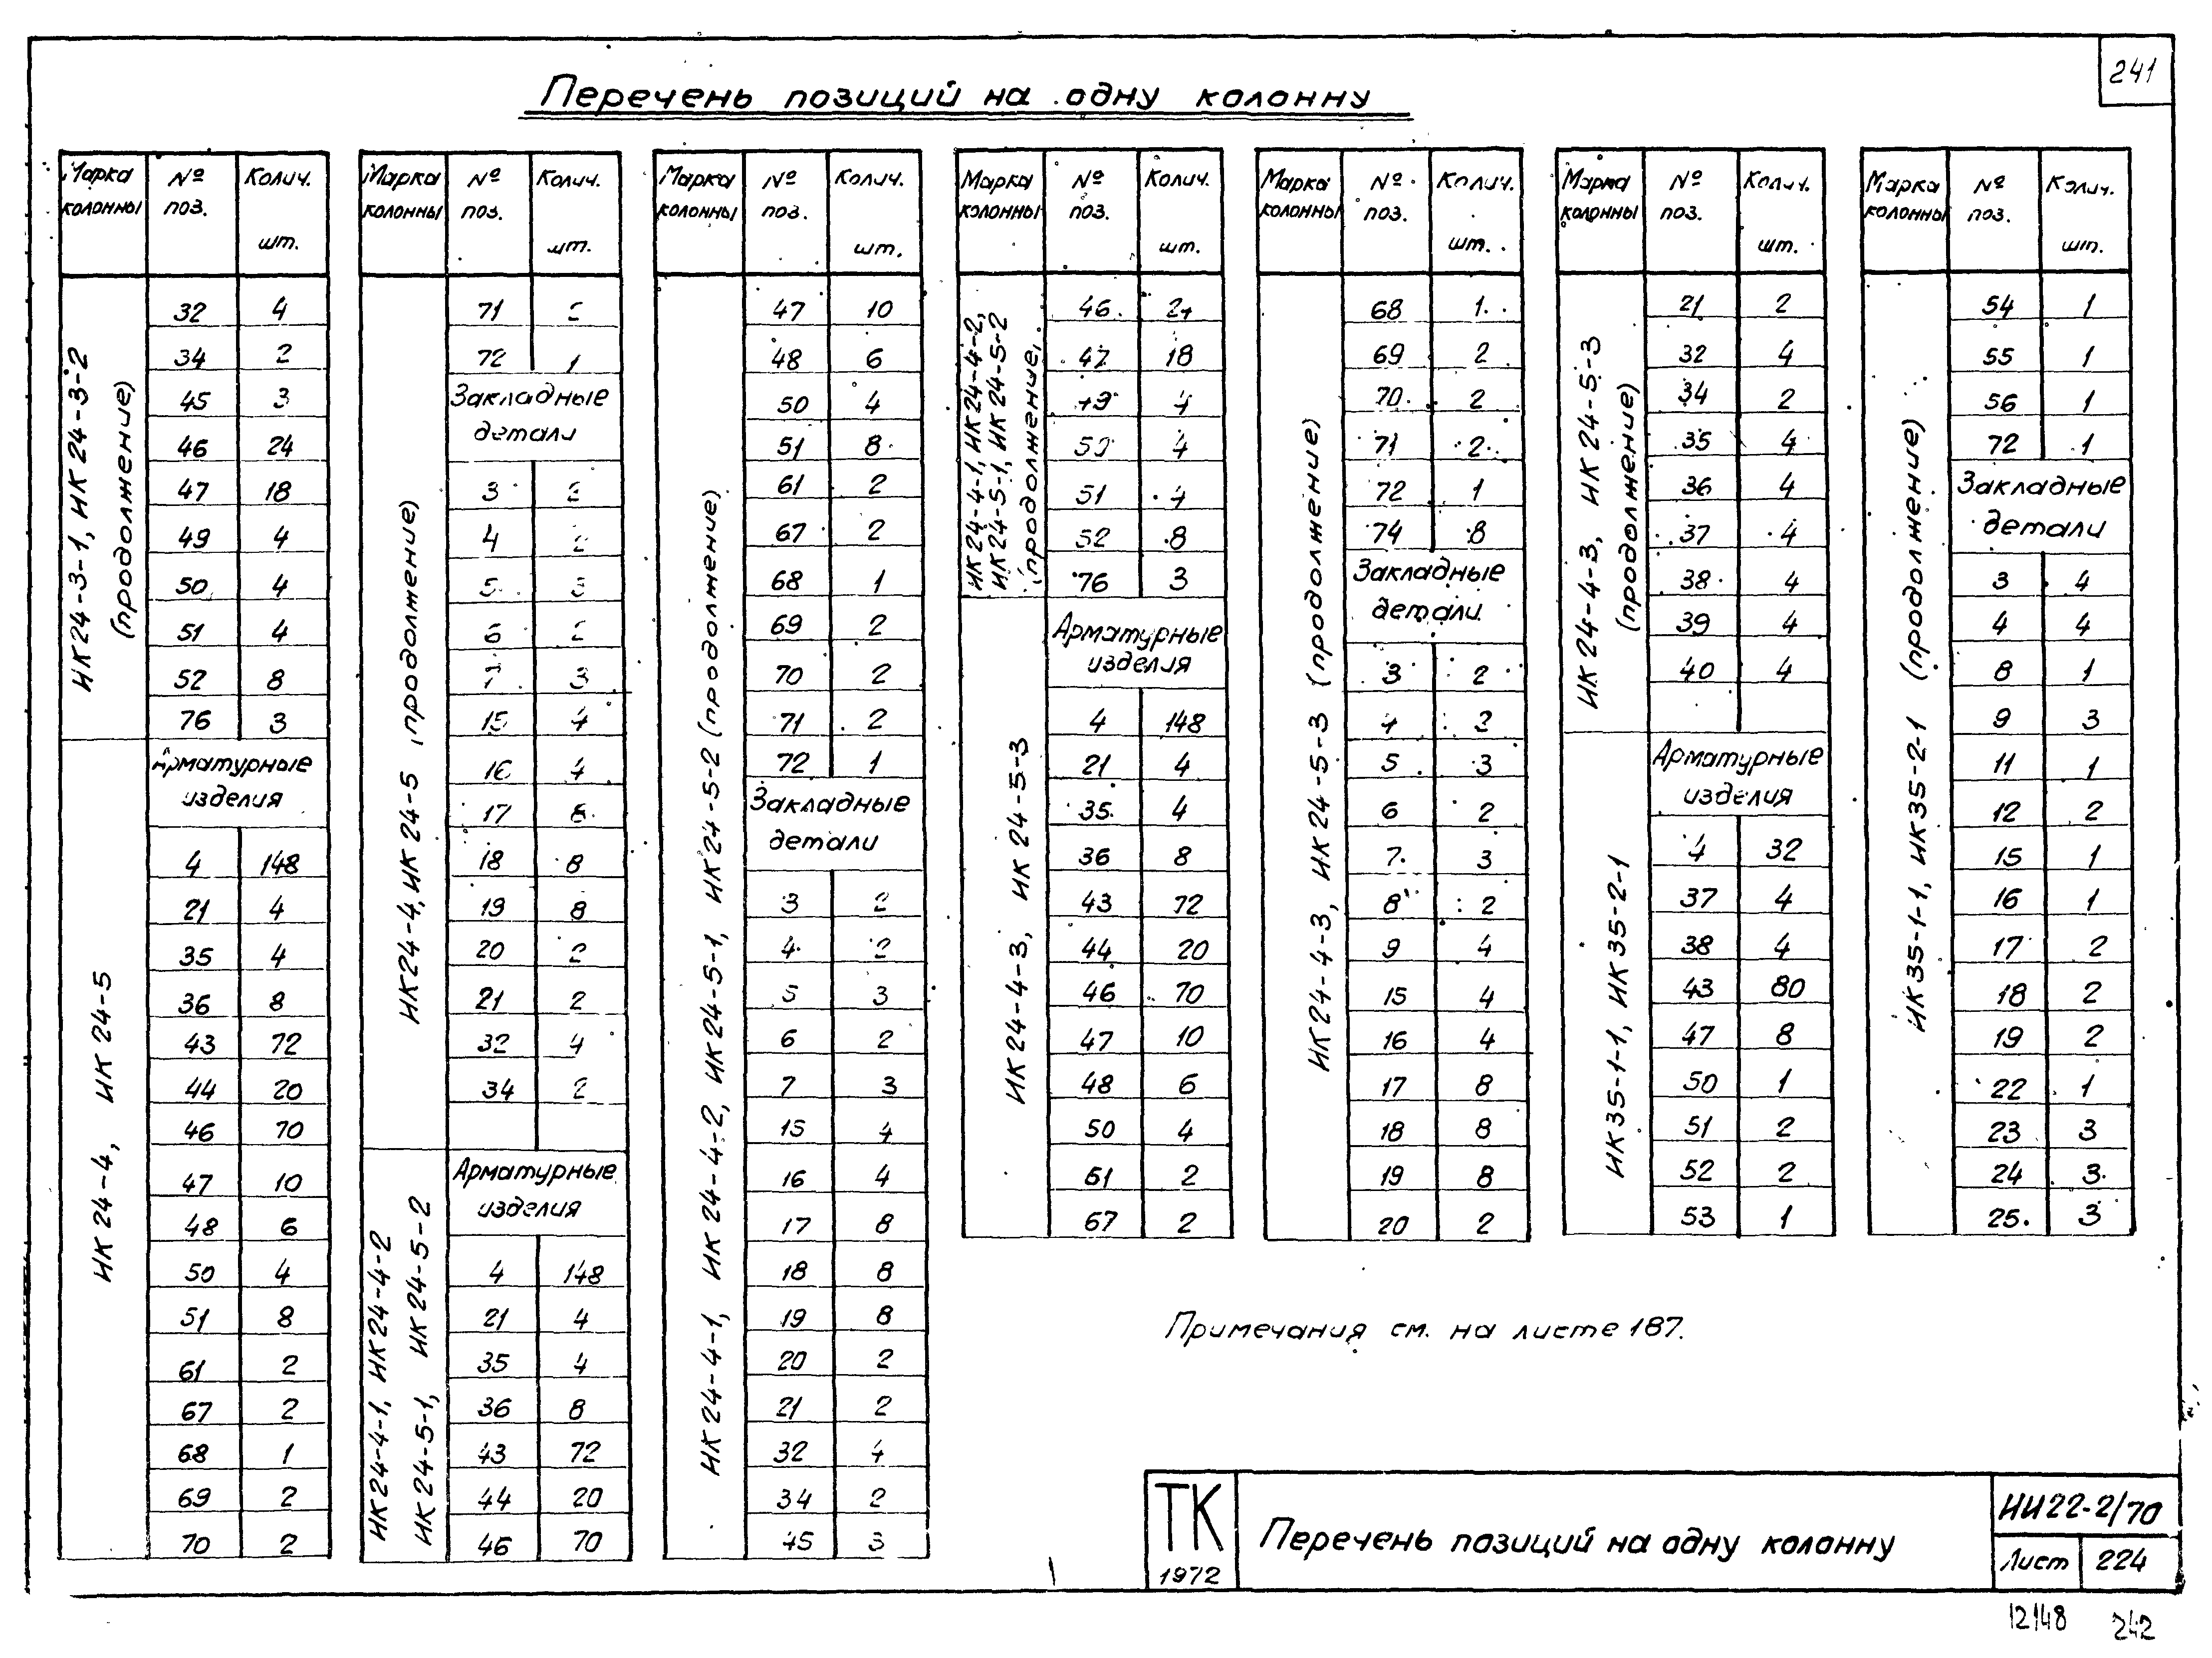 241
Перечень позиций на одну колонну
Марка колонны № поз. Колич. шт.
ИК24-3-1, ИК24-3-2 (продолжение)
32 4
34 2
45 3
46 24
47 18
49 4
50 4
51 4
52 8
76 3
ИК24-4, ИК24-5
Арматурные изделия
4 148
21 4
35 4
36 8
43 72
44 20
46 70
47 10
48 6
50 4
51 8
61 2
67 2
68 1
69 2
70 2
Марка колонны № поз. Колич. шт.
ИК24-4, ИК24-5 (продолжение)
71
72 1
Закладные детали
3
4 2
5 3
6 2
7 3
15 4
16 4
17
18 8
19 8
20 2
21 2
32 4
34 2
ИК24-4-1, ИК24-4-2
ИК24-5-1, ИК24-5-2
Арматурные изделия
4 148
21 4
35 4
36 8
43 72
44 20
46 70
Марка колонны № поз. Колич. шт.
ИК24-4-1, ИК24-4-2, ИК24-5-1, ИК24-5-2 (продолжение)
47 10
48 6
50 4
51 8
61 2
67 2
68 1
69 2
70 2
71 2
72 1
Закладные детали
3 2
4 2
5 3
6 2
7 3
15 4
16 4
17 8
18 8
19 8
20 2
21 2
32 4
34 2
45 3
Марка колонны № поз. Колич. шт.
ИК24-4-1, ИК24-4-2,
ИК24-5-1, ИК24-5-2
(продолжение)
46 24
47 18
49 4
50 4
51 4
52 8
76 3
ИК24-4-3, ИК24-5-3
Арматурные изделия
4 148
21 4
35 4
36 8
43 72
44 20
46 70
47 10
48 6
50 4
51 2
67 2
Марка колонны № поз. Колич. шт.
ИК24-4-3, ИК24-5-3 (продолжение)
68 1
69 2
70 2
71 2
72 1
74 8
Закладные детали
3 2
4 2
5 3
6 2
7 3
8 2
9 4
15 4
16 4
17 8
18 8
19 8
20 2
Марка колонны № поз. Колич. шт.
ИК24-4-3, ИК24-5-3 (продолжение)
21 2
32 4
34 2
35 4
36 4
37 4
38 4
39 4
40 4
ИК35-1-1, ИК35-2-1
Арматурные изделия
4 32
37 4
38 4
43 80
47 8
50 1
51 2
52 2
53 1
Марка колонны № поз. Колич. шт.
ИК35-1-1, ИК35-2-1 (продолжение)
54 1
55 1
56 1
72 1
Закладные детали
3 4
4 4
8 1
9 3
11 1
12 2
15 1
16 1
17 2
18 2
19 2
22 1
23 3
24 3
25 3
Примечания см. на листе 187.
ТК
1972
Перечень позиций на одну колонну
ИИ22-2/70
Лист 224
12148 242